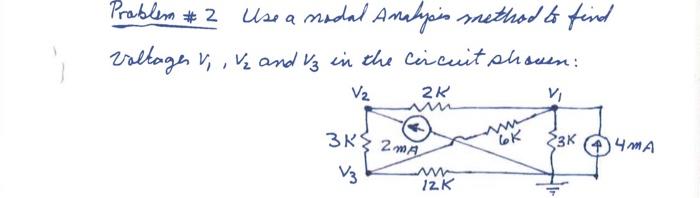 Problem # 2 Use a nodal Analysis method to find
voltages V1, V2 and V3 in the circuit shown:
V2 2K V1
3K 2mA 6K 3K 4mA
V3
12K